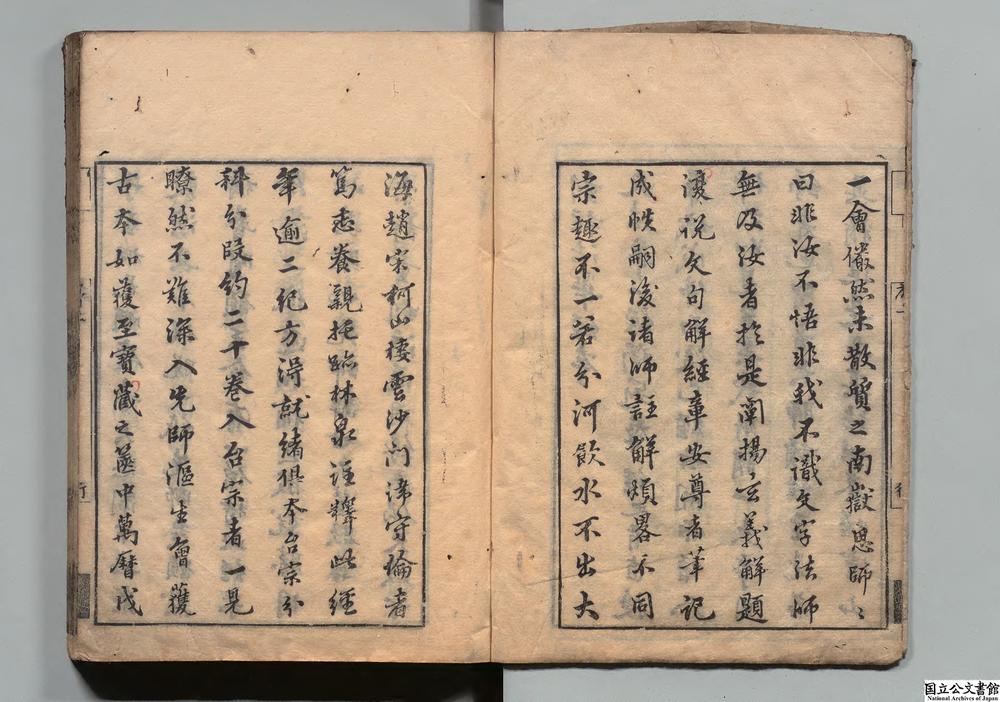 一會儼然未散質之南嶽思師〻
曰非汝不悟非我不識文字法師
無及汝者於是闡揚玄義解題
復說文句解經章安尊者筆記
成帙嗣後諸師註解頗畧不同
宗趣不一若分河飲水不出大
海趙宋柯山棲雲沙門諱守倫者
篤志養親托跡林泉註釋此經
年逾二紀方得就緒俱本台宗分
科分段約二十卷入台宗者一見
瞭然不難深入先師漚生會獲
古本如獲至寶藏之篋中萬曆戊
国立公文書館
National Archives of Japan